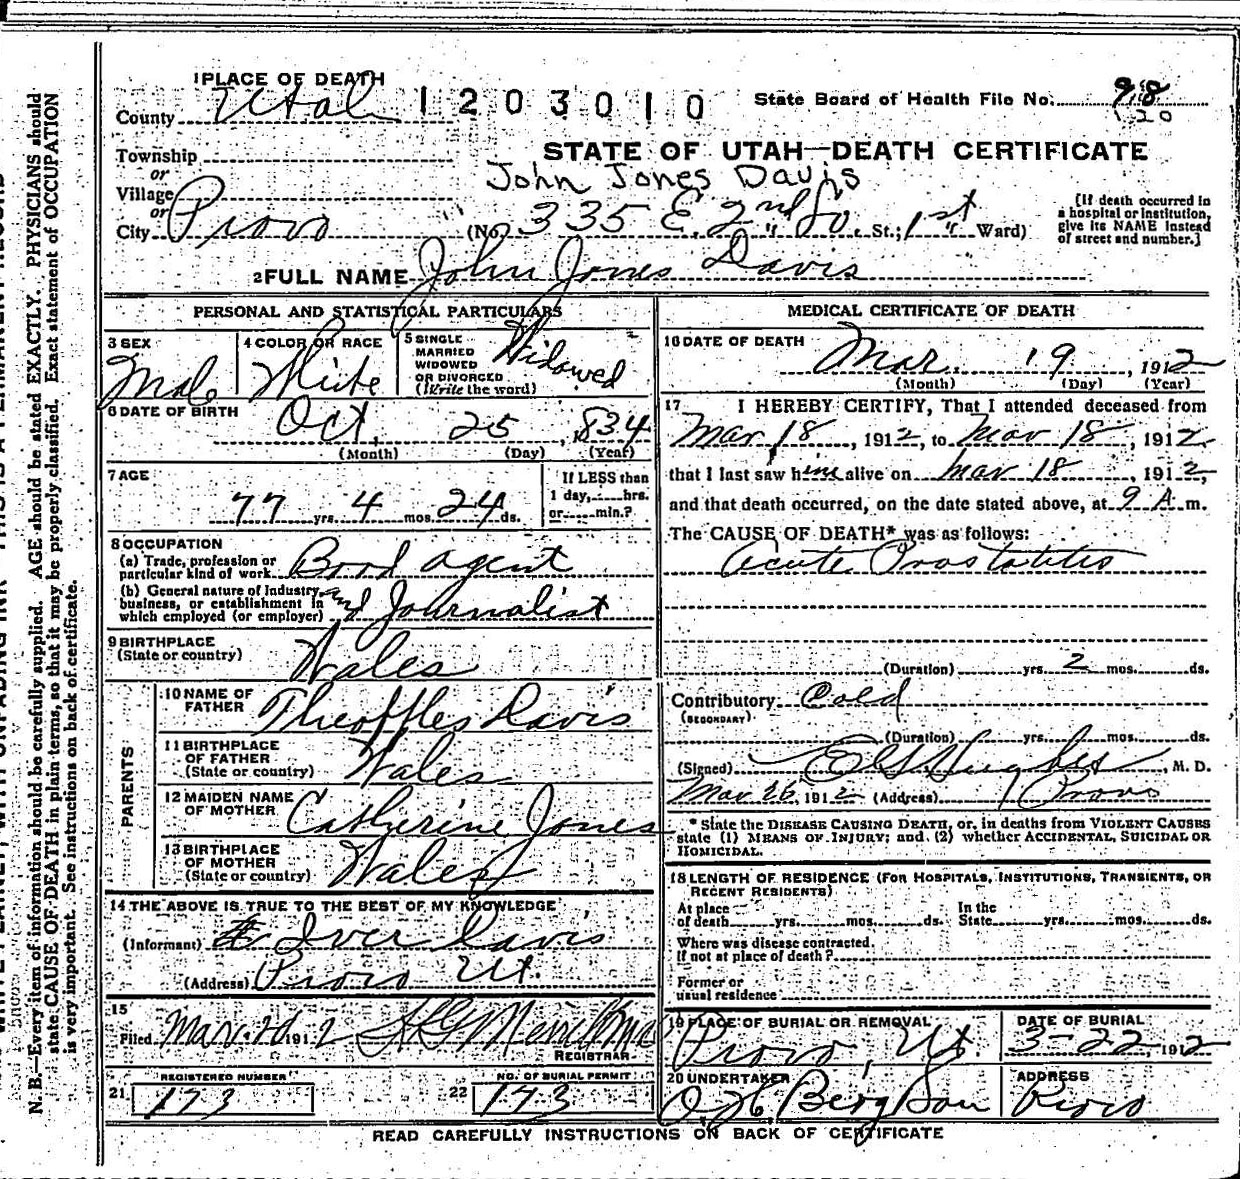 1 PLACE OF DEATH
County Utah 1203010 State Board of Health File No. 98
120
Township
STATE OF UTAH—DEATH CERTIFICATE
or
John Jones Davis
Village
or
City Provo (No. 335 E. 2nd So. St.; 1st Ward)
[If death occurred in
a hospital or institution,
give its NAME instead
of street and number.]
2 FULL NAME John Jones Davis
PERSONAL AND STATISTICAL PARTICULARS
3 SEX
Male
4 COLOR OR RACE
White
5 SINGLE
MARRIED
WIDOWED
OR DIVORCED
(Write the word)
Widowed
6 DATE OF BIRTH
Oct. 25, 1834
(Month) (Day) (Year)
7 AGE
77 yrs. 4 mos. 24 ds.
If LESS than
1 day, hrs.
or min.?
8 OCCUPATION
(a) Trade, profession or
particular kind of work Book agent
(b) General nature of Industry,
business, or establishment in
which employed (or employer) and Journalist
9 BIRTHPLACE
(State or country) Wales
PARENTS
10 NAME OF
FATHER Theoffles Davis
11 BIRTHPLACE
OF FATHER
(State or country) Wales
12 MAIDEN NAME
OF MOTHER Catherine Jones
13 BIRTHPLACE
OF MOTHER
(State or country) Wales
14 THE ABOVE IS TRUE TO THE BEST OF MY KNOWLEDGE
(Informant) Iver Davis
(Address) Provo Ut.
15
Filed Mar. 1912
REGISTRAR
REGISTERED NUMBER
21 173
NO. OF BURIAL PERMIT
22 173
MEDICAL CERTIFICATE OF DEATH
16 DATE OF DEATH
Mar. 19, 1912
(Month) (Day) (Year)
17 I HEREBY CERTIFY, That I attended deceased from
Mar 18, 1912, to Mar 18, 1912
that I last saw him alive on Mar 18, 1912,
and that death occurred, on the date stated above, at 9 A. m.
The CAUSE OF DEATH* was as follows:
Acute Prostatitis
(Duration) yrs. 2 mos. ds.
Contributory Cold
(SECONDARY)
(Duration) yrs. mos. ds.
(Signed) E G Hughes, M. D.
Mar 26, 1912 (Address) Provo
* State the DISEASE CAUSING DEATH, or, in deaths from VIOLENT CAUSES
state (1) MEANS OF INJURY; and (2) whether ACCIDENTAL, SUICIDAL OR
HOMICIDAL.
18 LENGTH OF RESIDENCE (FOR HOSPITALS, INSTITUTIONS, TRANSIENTS, OR
RECENT RESIDENTS)
At place
of death yrs. mos. ds.
In the
State yrs. mos. ds.
Where was disease contracted.
If not at place of death?
Former or
usual residence
19 PLACE OF BURIAL OR REMOVAL
Provo, Ut.
DATE OF BURIAL
3-22, 1912
20 UNDERTAKER
O. H. Berg & Son
ADDRESS
Provo
READ CAREFULLY INSTRUCTIONS ON BACK OF CERTIFICATE
N. B.—Every item of information should be carefully supplied. AGE should be stated EXACTLY. PHYSICIANS should
state CAUSE OF DEATH in plain terms, so that it may be properly classified. Exact statement of OCCUPATION
is very important. See instructions on back of certificate.